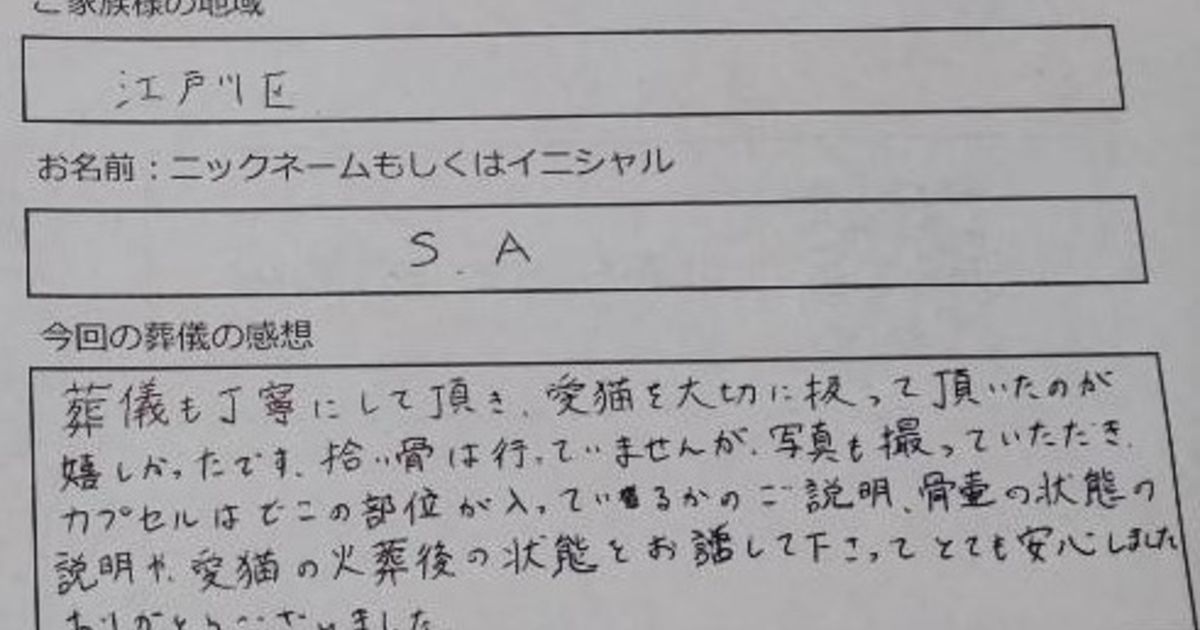 ご家族様の地域
江戸川区
お名前：ニックネームもしくはイニシャル
S.A
今回の葬儀の感想
葬儀も丁寧にして頂き、愛猫を大切に扱って頂いたのが
嬉しかったです。拾い骨は行っていませんが、写真も撮っていただき、
カプセルはどこの部位が入っているかのご説明、骨壷の状態の
説明や、愛猫の火葬後の状態をお話して下さってとても安心しました
ありがとうございました